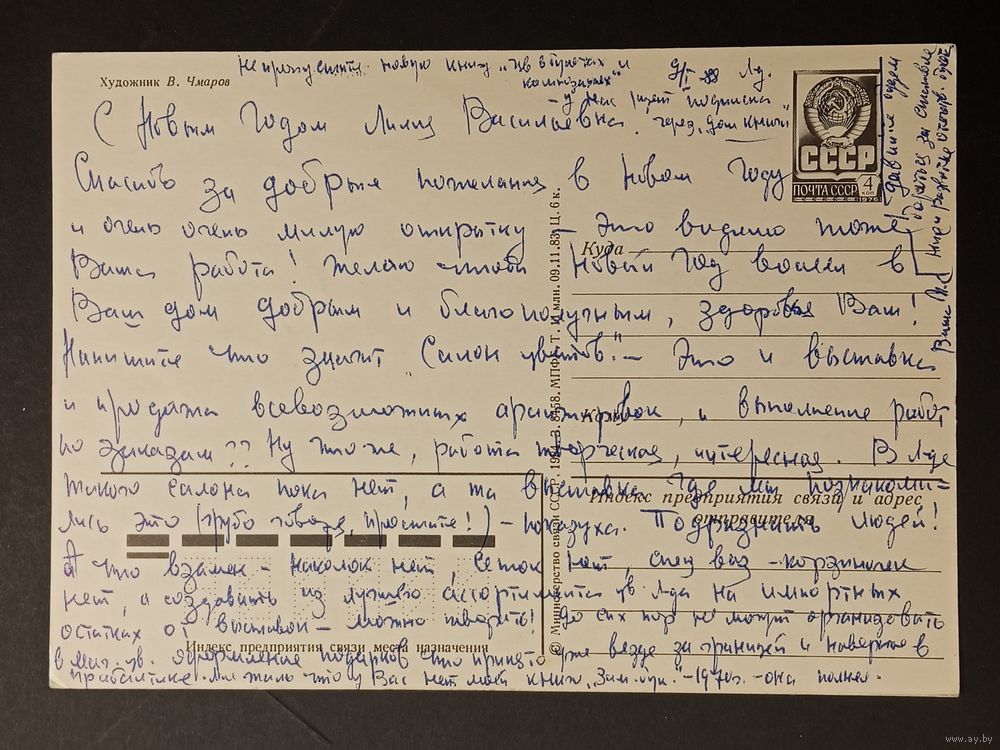 Художник В. Чмаров
Не пропустите новую книгу "Цв в букетах и
композициях"
- у нас идет подписка
через "Дом книги"
9/I Лд.
С Новым Годом Лилия Васильевна.
СССР
ПОЧТА СССР 4 коп
1976
Спасибо за добрые пожелания в Новом Году
и очень очень милую открытку - это видимо тоже
Куда
Ваша работа! Желаю чтобы Новый Год вошел в
Ваш дом добрым и благополучным, здоровья Вам!
Напишите что значит "Салон цветов"? - Это и выставка
и продажа всевозможных аранжировок, и выполнение работ
Кому
по заказам?? Ну что же, работа творческая, интересная. В Лде
такого салона пока нет, а та выставка где мы познакоми-
Индекс предприятия связи и адрес
отправителя
лись это (грубо говоря, простите!) - показуха. Подразнить людей!
А что взамен - наколок нет, сеток нет, спец ваз - корзиночек
нет, а создавать из лучшего ассортимента цв Лда на импортных
остатках от выставок - можно творить! До сих пор не могут организовать
Индекс предприятия связи места назначения
в маг. цв. оформление подарков что принято уже везде за границей и наверное в
Прибалтике. Мне жаль что у Вас нет моей книги "Зим. бук." - 1970г. - она полнее.
© Министерство связи СССР, 1984. З. 8458. МПФГ. Т. 11 млн. 09.11.83. Ц. 6 к.
Давайте будем
бороться за счастье